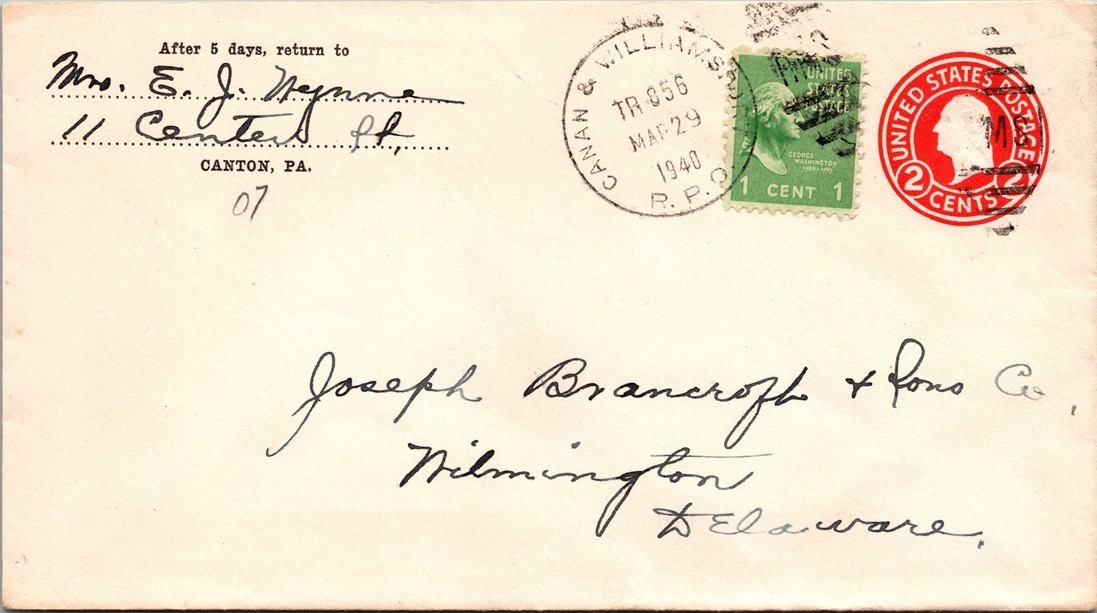 After 5 days, return to
Mrs. E. J. Wynne
11 Center St.
CANTON, PA.
07
CANAN & WILLIAMSPORT
TR 856
MAR 29
1940
R. P. O.
UNITED
STATES
POSTAGE
GEORGE
WASHINGTON
1 CENT 1
UNITED STATES POSTAGE
2 CENTS 2
Joseph Brancroft + Sons Co.,
Wilmington
Delaware.